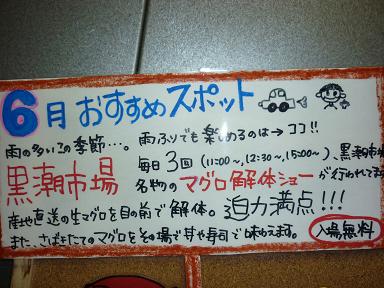 6月 おすすめスポット
雨の多いこの季節…。雨ふりでも楽しめるのは→ココ!!
黒潮市場
毎日3回(11:00〜、12:30〜、15:00〜)、黒潮市場
名物のマグロ解体ショーが行われてます
産地直送の生マグロを目の前で解体。迫力満点!!!
また、さばきたてのマグロをその場で丼や寿司で味わえます。
入場無料